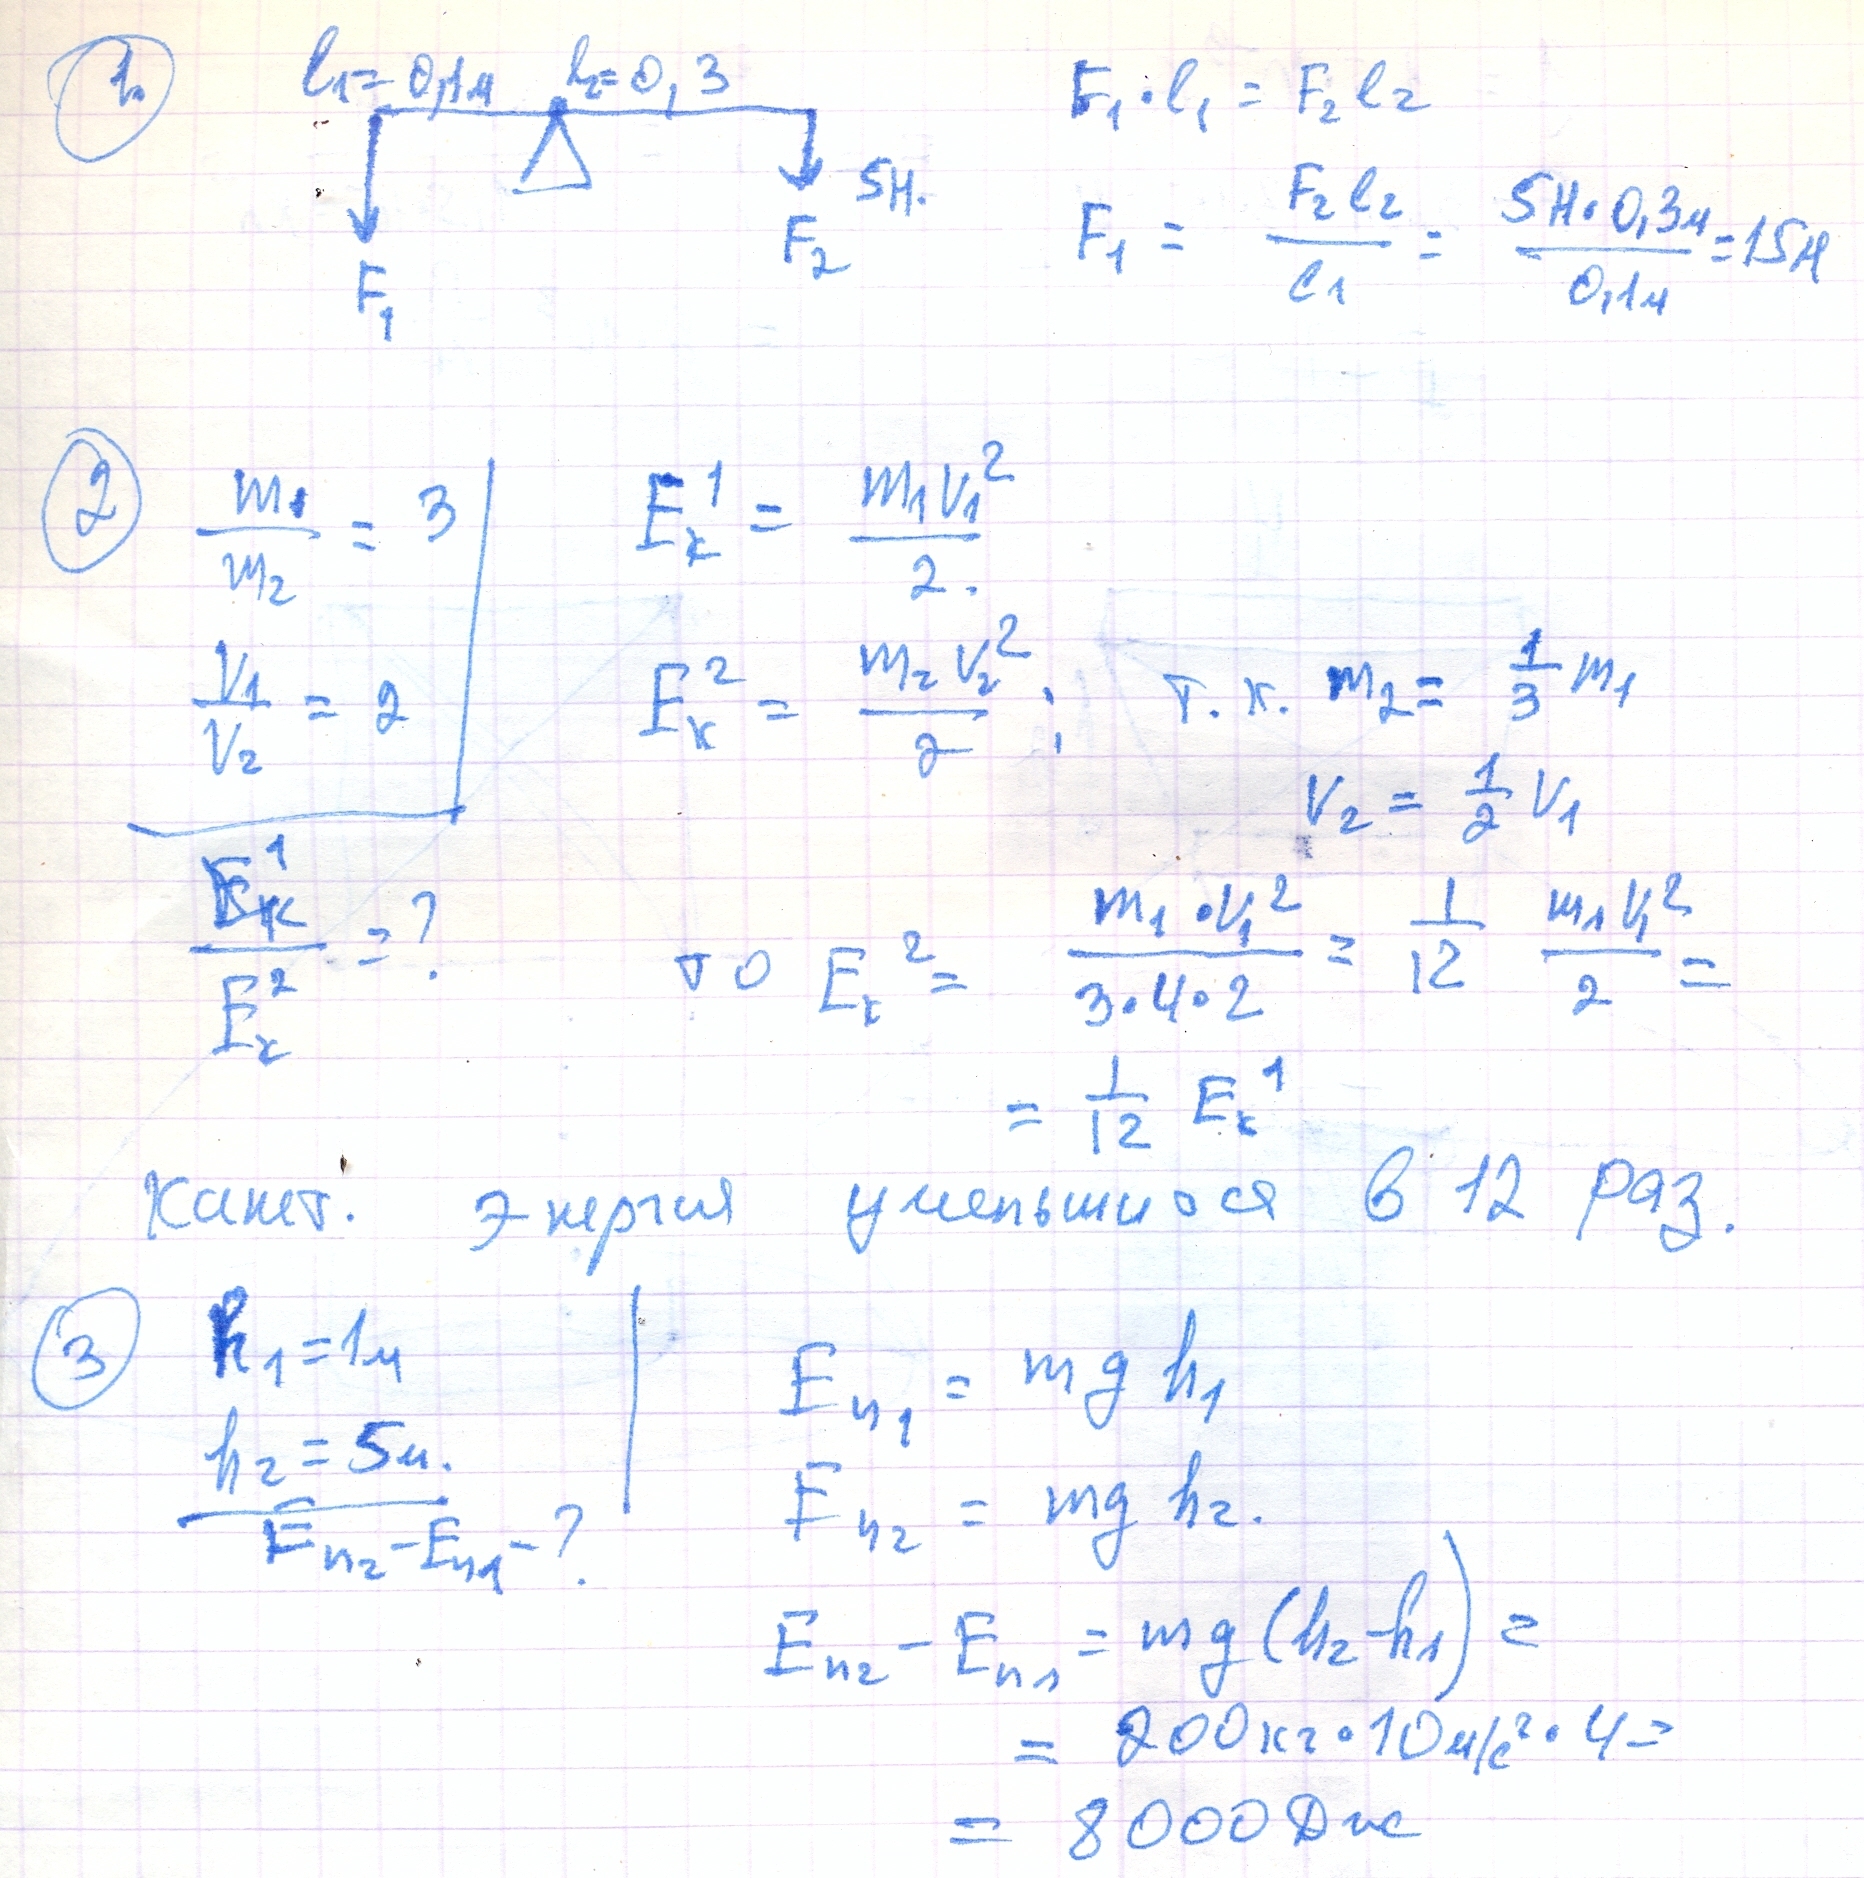 1.
l₁=0,1м l₂=0,3
F₁·l₁ = F₂l₂
5Н.
F₁ F₂
F₁ = F₂l₂/l₁ = 5Н·0,3м/0,1м = 15Н
2
m₁/m₂ = 3
Eₖ¹ = m₁v₁²/2.
V₁/V₂ = 2
Eₖ² = m₂v₂²/2; т.к. m₂ = 1/3 m₁
V₂ = 1/2 V₁
Eₖ¹/Eₖ² = ?
то Eₖ² = m₁·v₁²/3·4·2 = 1/12 m₁v₁²/2 =
= 1/12 Eₖ¹
Кинет. энергия уменьшится в 12 раз.
3
h₁=1м
h₂=5м.
Eп₂-Eп₁-?
Eп₁ = mgh₁
Eп₂ = mgh₂.
Eп₂ - Eп₁ = mg(h₂-h₁) =
= 200кг·10м/с²·4=
= 8000Дж